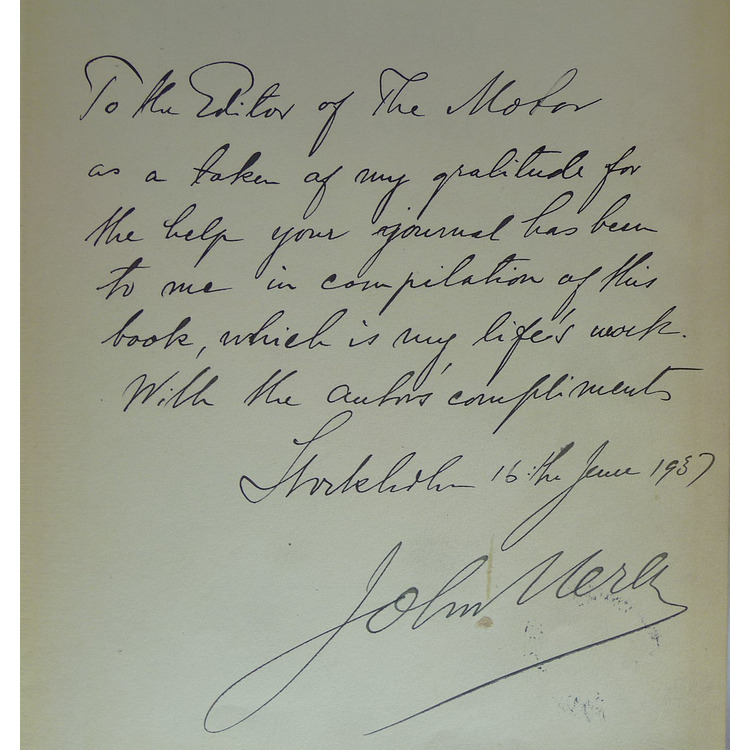 To the Editor of The Motor
as a token of my gratitude for
the help your journal has been
to me in compilation of this
book, which is my life's work.
With the autor's compliments
Stockholm 16:the June 1937
John Nerén